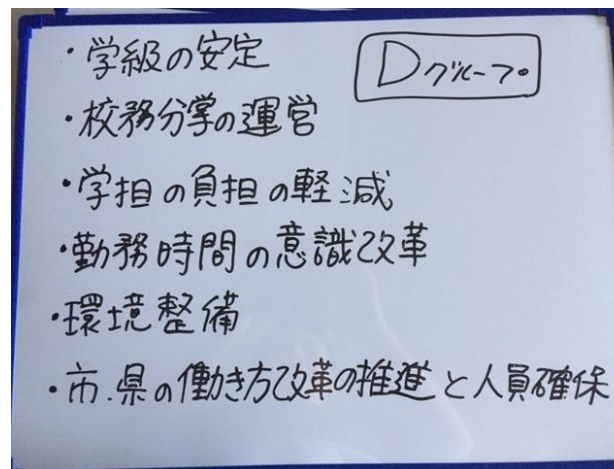 ・学級の安定
Dグループ
・校務分掌の運営
・学担の負担の軽減
・勤務時間の意識改革
・環境整備
・市.県の働き方改革の推進と人員確保